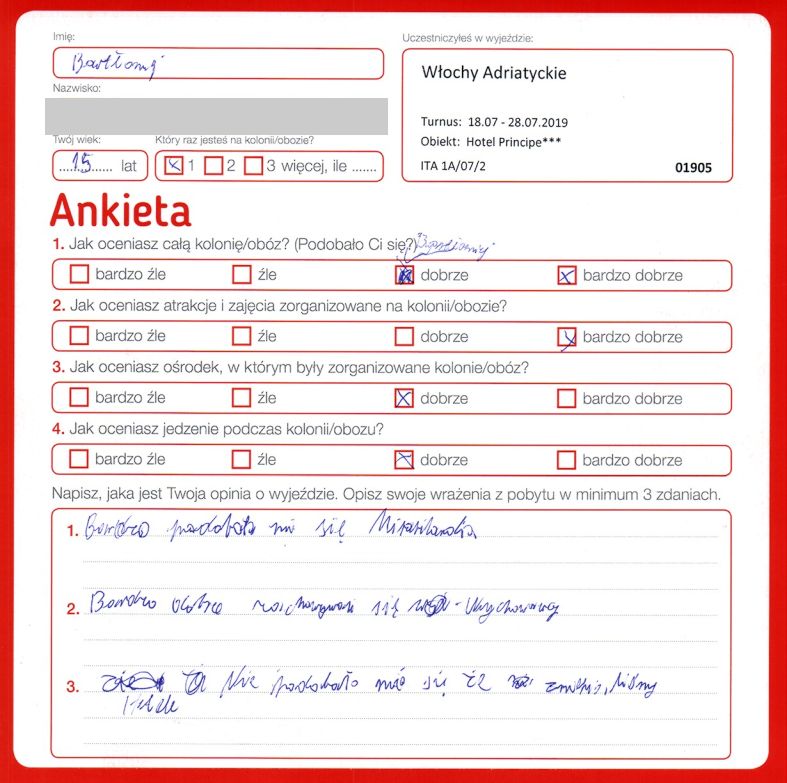 Imię:
Bartłomij
Nazwisko:
Twój wiek:
15 lat
Który raz jesteś na kolonii/obozie?
1 2 3 więcej, ile .......
Uczestniczyłeś w wyjeździe:
Włochy Adriatyckie
Turnus: 18.07 - 28.07.2019
Obiekt: Hotel Principe***
ITA 1A/07/2 01905
Ankieta
1. Jak oceniasz całą kolonię/obóz? (Podobało Ci się?)
bardzo źle źle dobrze bardzo dobrze
2. Jak oceniasz atrakcje i zajęcia zorganizowane na kolonii/obozie?
bardzo źle źle dobrze bardzo dobrze
3. Jak oceniasz ośrodek, w którym były zorganizowane kolonie/obóz?
bardzo źle źle dobrze bardzo dobrze
4. Jak oceniasz jedzenie podczas kolonii/obozu?
bardzo źle źle dobrze bardzo dobrze
Napisz, jaka jest Twoja opinia o wyjeździe. Opisz swoje wrażenia z pobytu w minimum 3 zdaniach.
1. Bardzo podobała mi się Mirabilandia
2. Bardzo dobrze się
3. Nie podobało mi się że